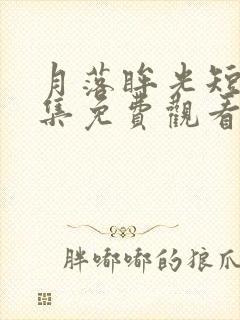 月落眸光短
集免費觀看
胖嘟嘟的狼爪